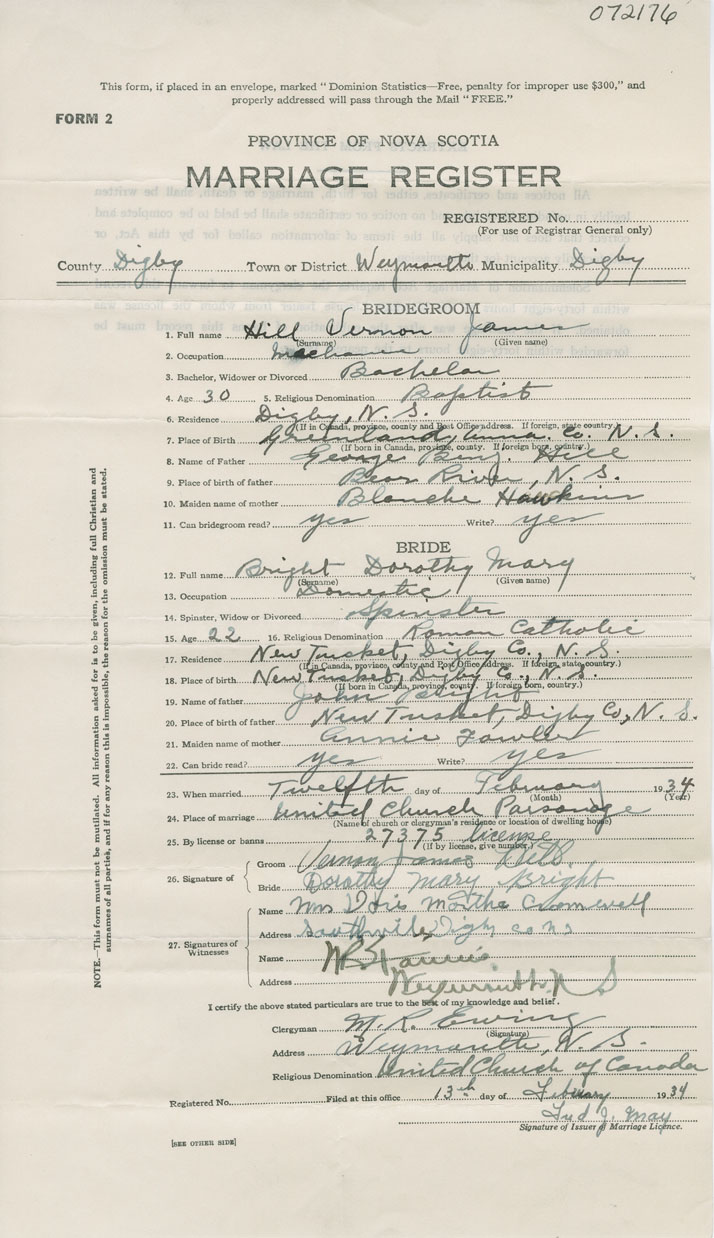 072176
This form, if placed in an envelope, marked "Dominion Statistics—Free, penalty for improper use $300," and
properly addressed will pass through the Mail "FREE."
FORM 2
PROVINCE OF NOVA SCOTIA
MARRIAGE REGISTER
REGISTERED No.
(For use of Registrar General only)
County Digby Town or District Weymouth Municipality Digby
BRIDEGROOM
1. Full name Hill Vernon James
(Surname) (Given name)
2. Occupation Mechanic
3. Bachelor, Widower or Divorced Bachelor
4. Age 30 5. Religious Denomination Baptist
6. Residence Digby, N. S.
(If in Canada, province, county and Post Office address. If foreign, state country.)
7. Place of Birth Greenland, Anna. Co. N. S.
(If born in Canada, province, county. If foreign born, country.)
8. Name of Father George Benj. Hill
9. Place of birth of father Bear River, N. S.
10. Maiden name of mother Blanche Hawkins
11. Can bridegroom read? yes Write? yes
BRIDE
12. Full name Bright Dorothy Mary
(Surname) (Given name)
13. Occupation Domestic
14. Spinster, Widow or Divorced Spinster
15. Age 22 16. Religious Denomination Roman Catholic
17. Residence New Tusket, Digby Co., N. S.
(If in Canada, province, county and Post Office address. If foreign, state country.)
18. Place of birth New Tusket, Digby Co., N. S.
(If born in Canada, province, county. If foreign born, country.)
19. Name of father John Bright
20. Place of birth of father New Tusket, Digby Co, N. S.
21. Maiden name of mother Annie Fowler
22. Can bride read? yes Write? yes
23. When married Twelfth day of February 1934
(Month) (Year)
24. Place of marriage United Church Parsonage
(Name of church or clergyman's residence or location of dwelling house)
25. By license or banns 27375 license
(If by license, give number)
26. Signature of
Groom Vernon James Hill
Bride Dorothy Mary Bright
27. Signatures of Witnesses
Name Mrs Doris Martha Cromwell
Address Southville Digby co ns
Name
Address Weymouth N S
I certify the above stated particulars are true to the best of my knowledge and belief.
Clergyman M. R. Ewing
(Signature)
Address Weymouth, N. S.
Religious Denomination United Church of Canada
Registered No. Filed at this office 13th day of February 1934
Fred J. May
Signature of Issuer of Marriage Licence.
[SEE OTHER SIDE]
NOTE.—This form must not be mutilated. All information asked for is to be given, including full Christian and
surnames of all parties, and if for any reason this is impossible, the reason for the omission must be stated.